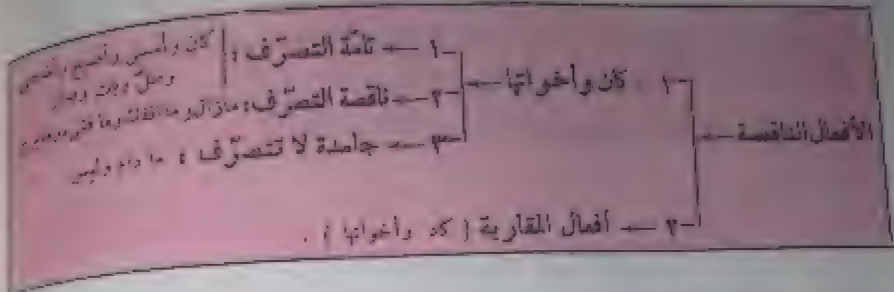 الأفعال الناقصة
١ - كان وأخواتها
١ - تامّة التصرّف : كان وأمسى وأصبح وأضحى
وظلّ وبات وصار
٢ - ناقصة التصرّف : مازال وما انفك وما فتئ
٣ - جامدة لا تتصرّف : ما دام وليس
٢ - أفعال المقاربة ( كاد وأخواتها ) .